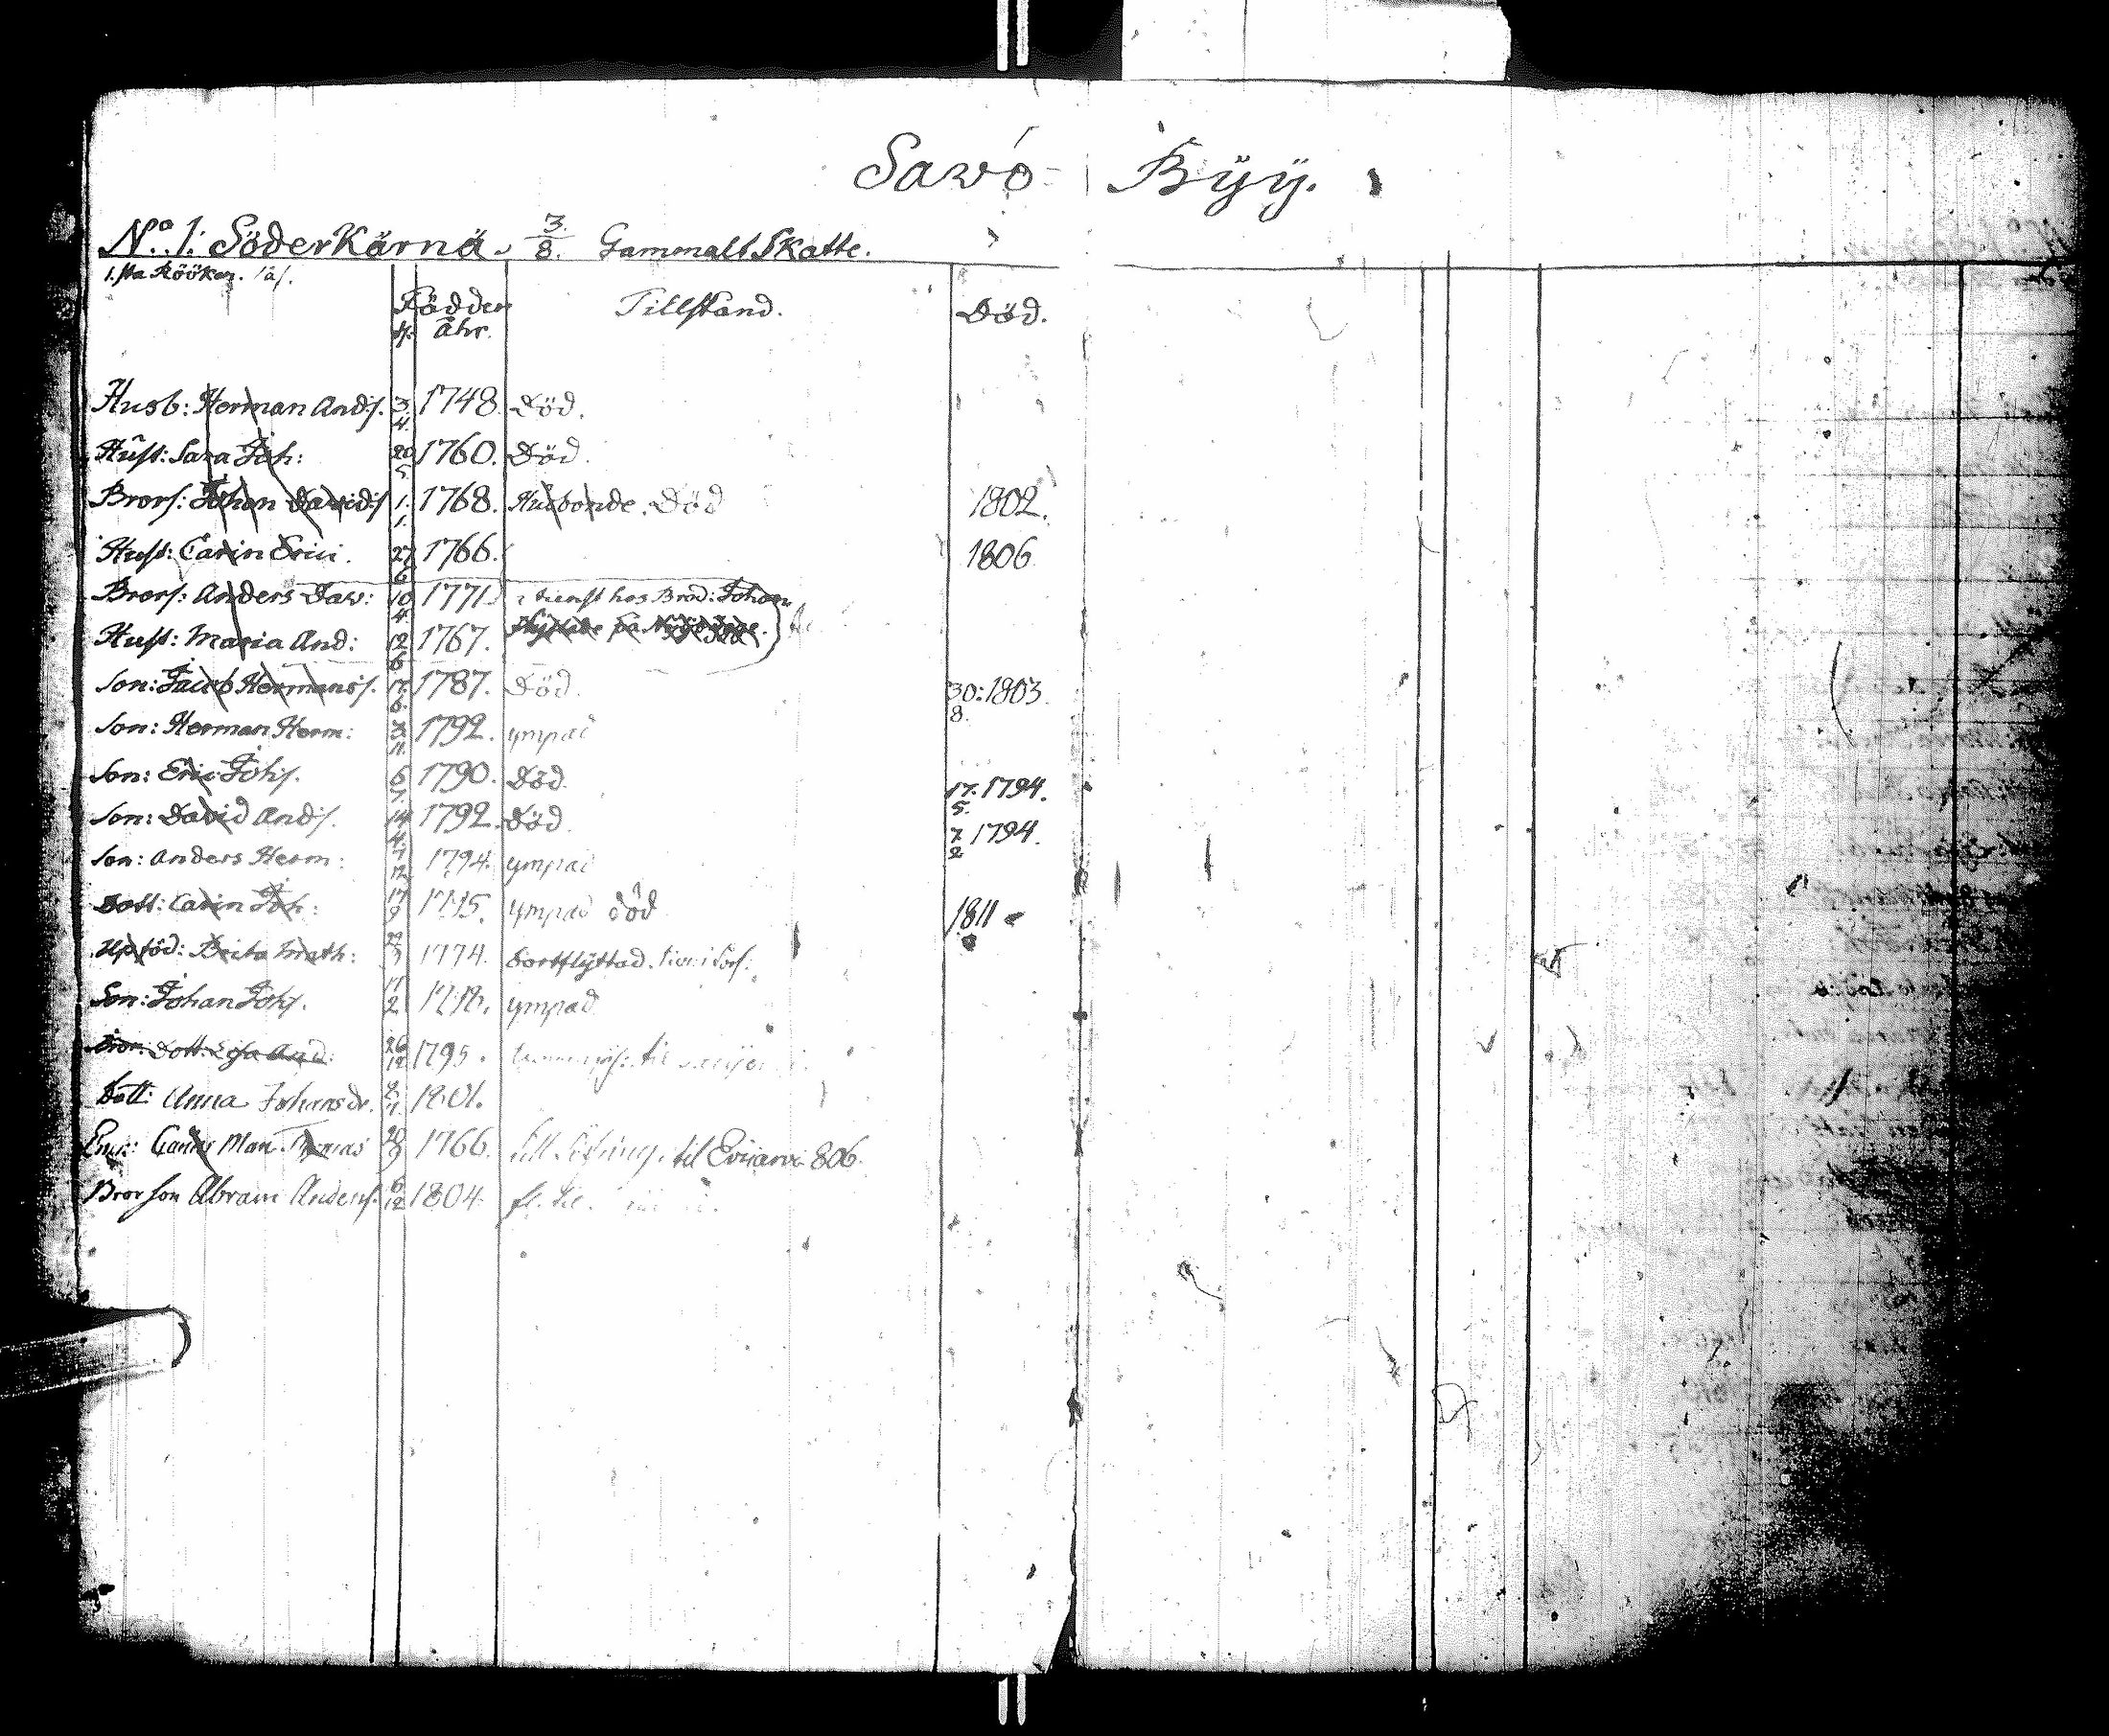 Sawo- Byÿ.
No. 1. Söderkärnä. 3/8. Gammalt Skatte.
1.sta Rööken.
Född den Åhr. Tillstånd. Död.
Husb: Herman And:s. 3/4. 1748. Död.
Hust: Sara Joh: 20/5 1760. Död.
Brors: Johan David:s 1./1. 1768. Husbonde. Död 1802.
Hust: Carin Erici. 27/6 1766. 1806
Brors: Anders Daw: 10/4 1771. i tienst hos Brod: Johan
Hust: Maria And: 12/6 1767.
Son: Jacob Hermans:s. 17/6. 1787. Död. 30:/8. 1803.
Son: Herman Herm: 3/11. 1792. ympad
Son: Eric Johs. 6/7. 1790. Död. 17./5. 1794.
Son: David And:s. 14/4. 1792. Död. 7/2 1794.
Son: Anders Herm: 7/12 1794. ympad
Dott: Carin Joh: 17/9 ympad död 1811
Upföd: Brita Math: 1774. bortflyttad.
Son: Johan Johs. 17/2 ympad
Dott: And: 26/12 1795. til
Dott: Anna Johansdr. 1801.
Enk: Man Thomas 1766. til 806.
Bror son Abram Anders. 6/12 1804. fl. til